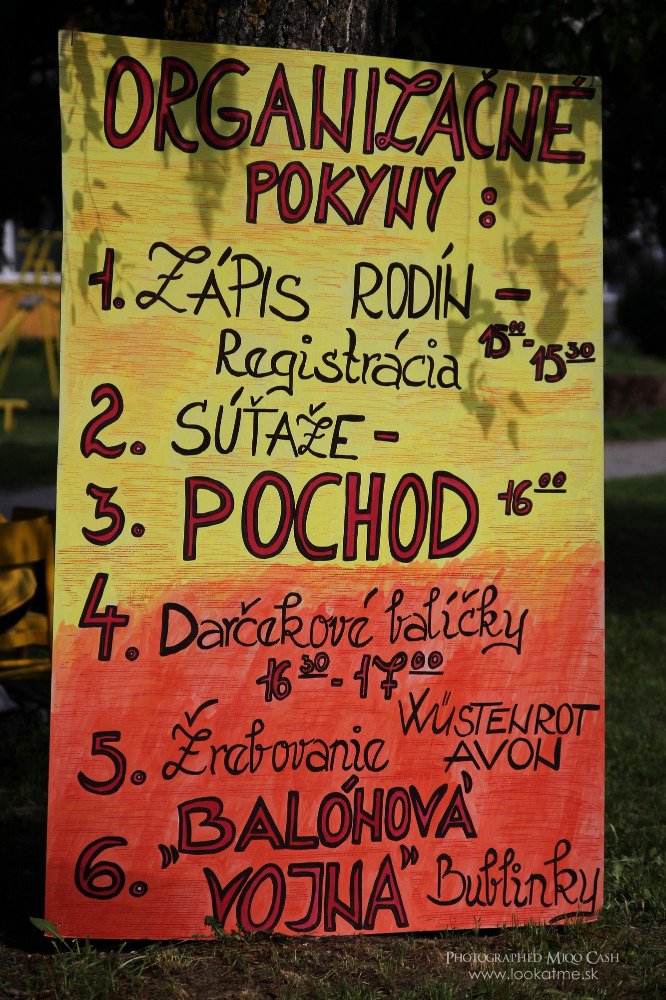 ORGANIZAČNÉ
POKYNY :
1. ZÁPIS RODÍN -
Registrácia 15⁰⁰- 15³⁰
2. SÚŤAŽE -
3. POCHOD 16⁰⁰
4. Darčekové balíčky
16³⁰ - 17⁰⁰
5. Žrebovanie WÜSTENROT
AVON
6. „BALÓNOVÁ
VOJNA" Bublinky
PHOTOGRAPHED MIQO CASH
www.lookatme.sk